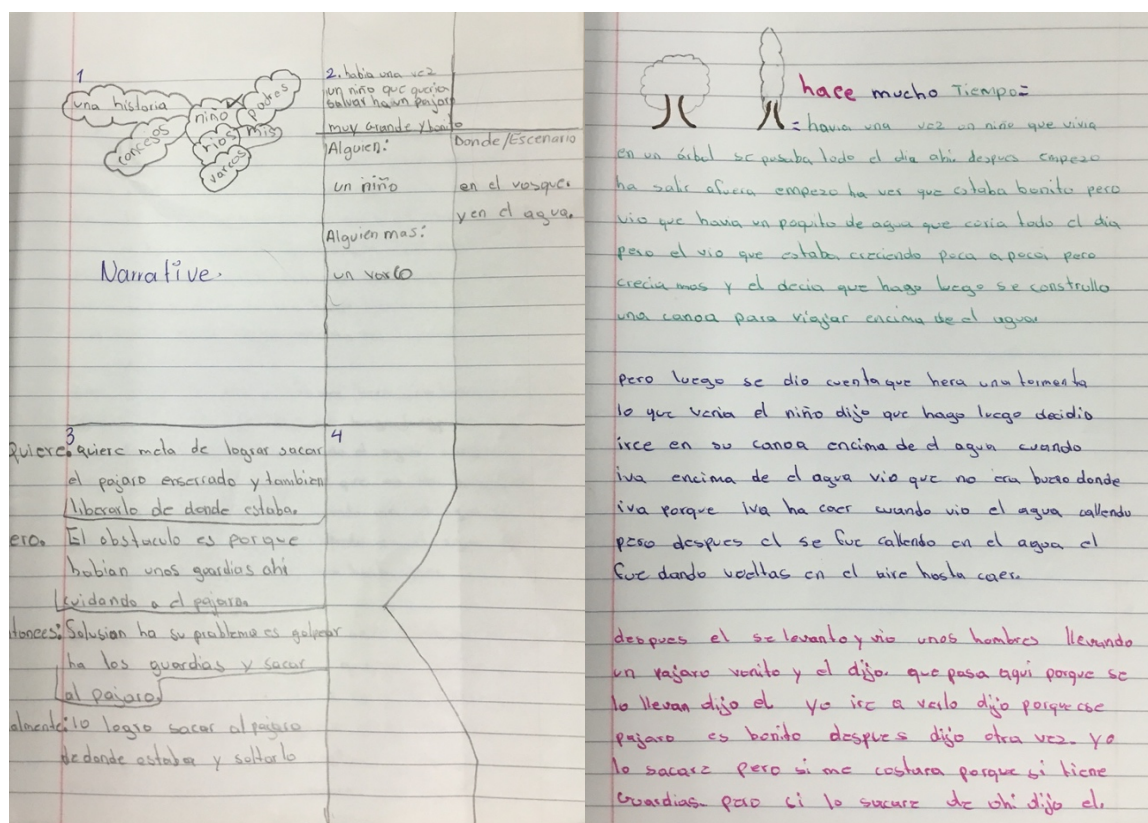 1
una historia
niño
padres
conéjos
rios
mis
varcos
Narrative.
2. habia una vez
un niño que queria
salvar ha un pajaro
muy grande y bonito
Alguien:
un niño
Alguien mas:
un varco
Donde/Escenario
en el vosque.
y en el agua.
3
Quiere: quiere meta de lograr sacar
el pajaro enserrado y tambien
liberarlo de donde estaba.
ero. El obstaculo es porque
habian unos guardias ahi
cuidando a el pajaro.
tonces: Solusion ha su problema es golpear
ha los guardias y sacar
al pajaro.
almente: lo logro sacar al pajaro
de donde estaba y soltarlo
4
hace mucho Tiempo=
= havia una vez un niño que vivia
en un árbol se pasaba todo el dia ahi despues empezo
ha salir afuera empezo ha ver que estaba bonito pero
vio que havia un poquito de agua que coria todo el dia
pero el vio que estaba creciendo poca a poca pero
crecia mas y el decia que hago luego se construllo
una canoa para viajar encima de el agua.
pero luego se dio cuenta que hera una tormenta
lo que venia el niño dijo que hago luego decidio
irce en su canoa encima de el agua cuando
iva encima de el agua vio que no era bueno donde
iva porque iva ha caer cuando vio el agua callendo
pero despues el se fue callendo en el agua el
fue dando vueltas en el aire hasta caer.
despues el se levanto y vio unos hombres llevando
un pajaro vonito y el dijo. que pasa aqui porque se
lo llevan dijo el yo ire a verlo dijo porque ese
pajaro es bonito despues dijo otra vez. yo
lo sacare pero si me costara porque si tiene
Guardias. pero si lo sacare de ahi dijo el.